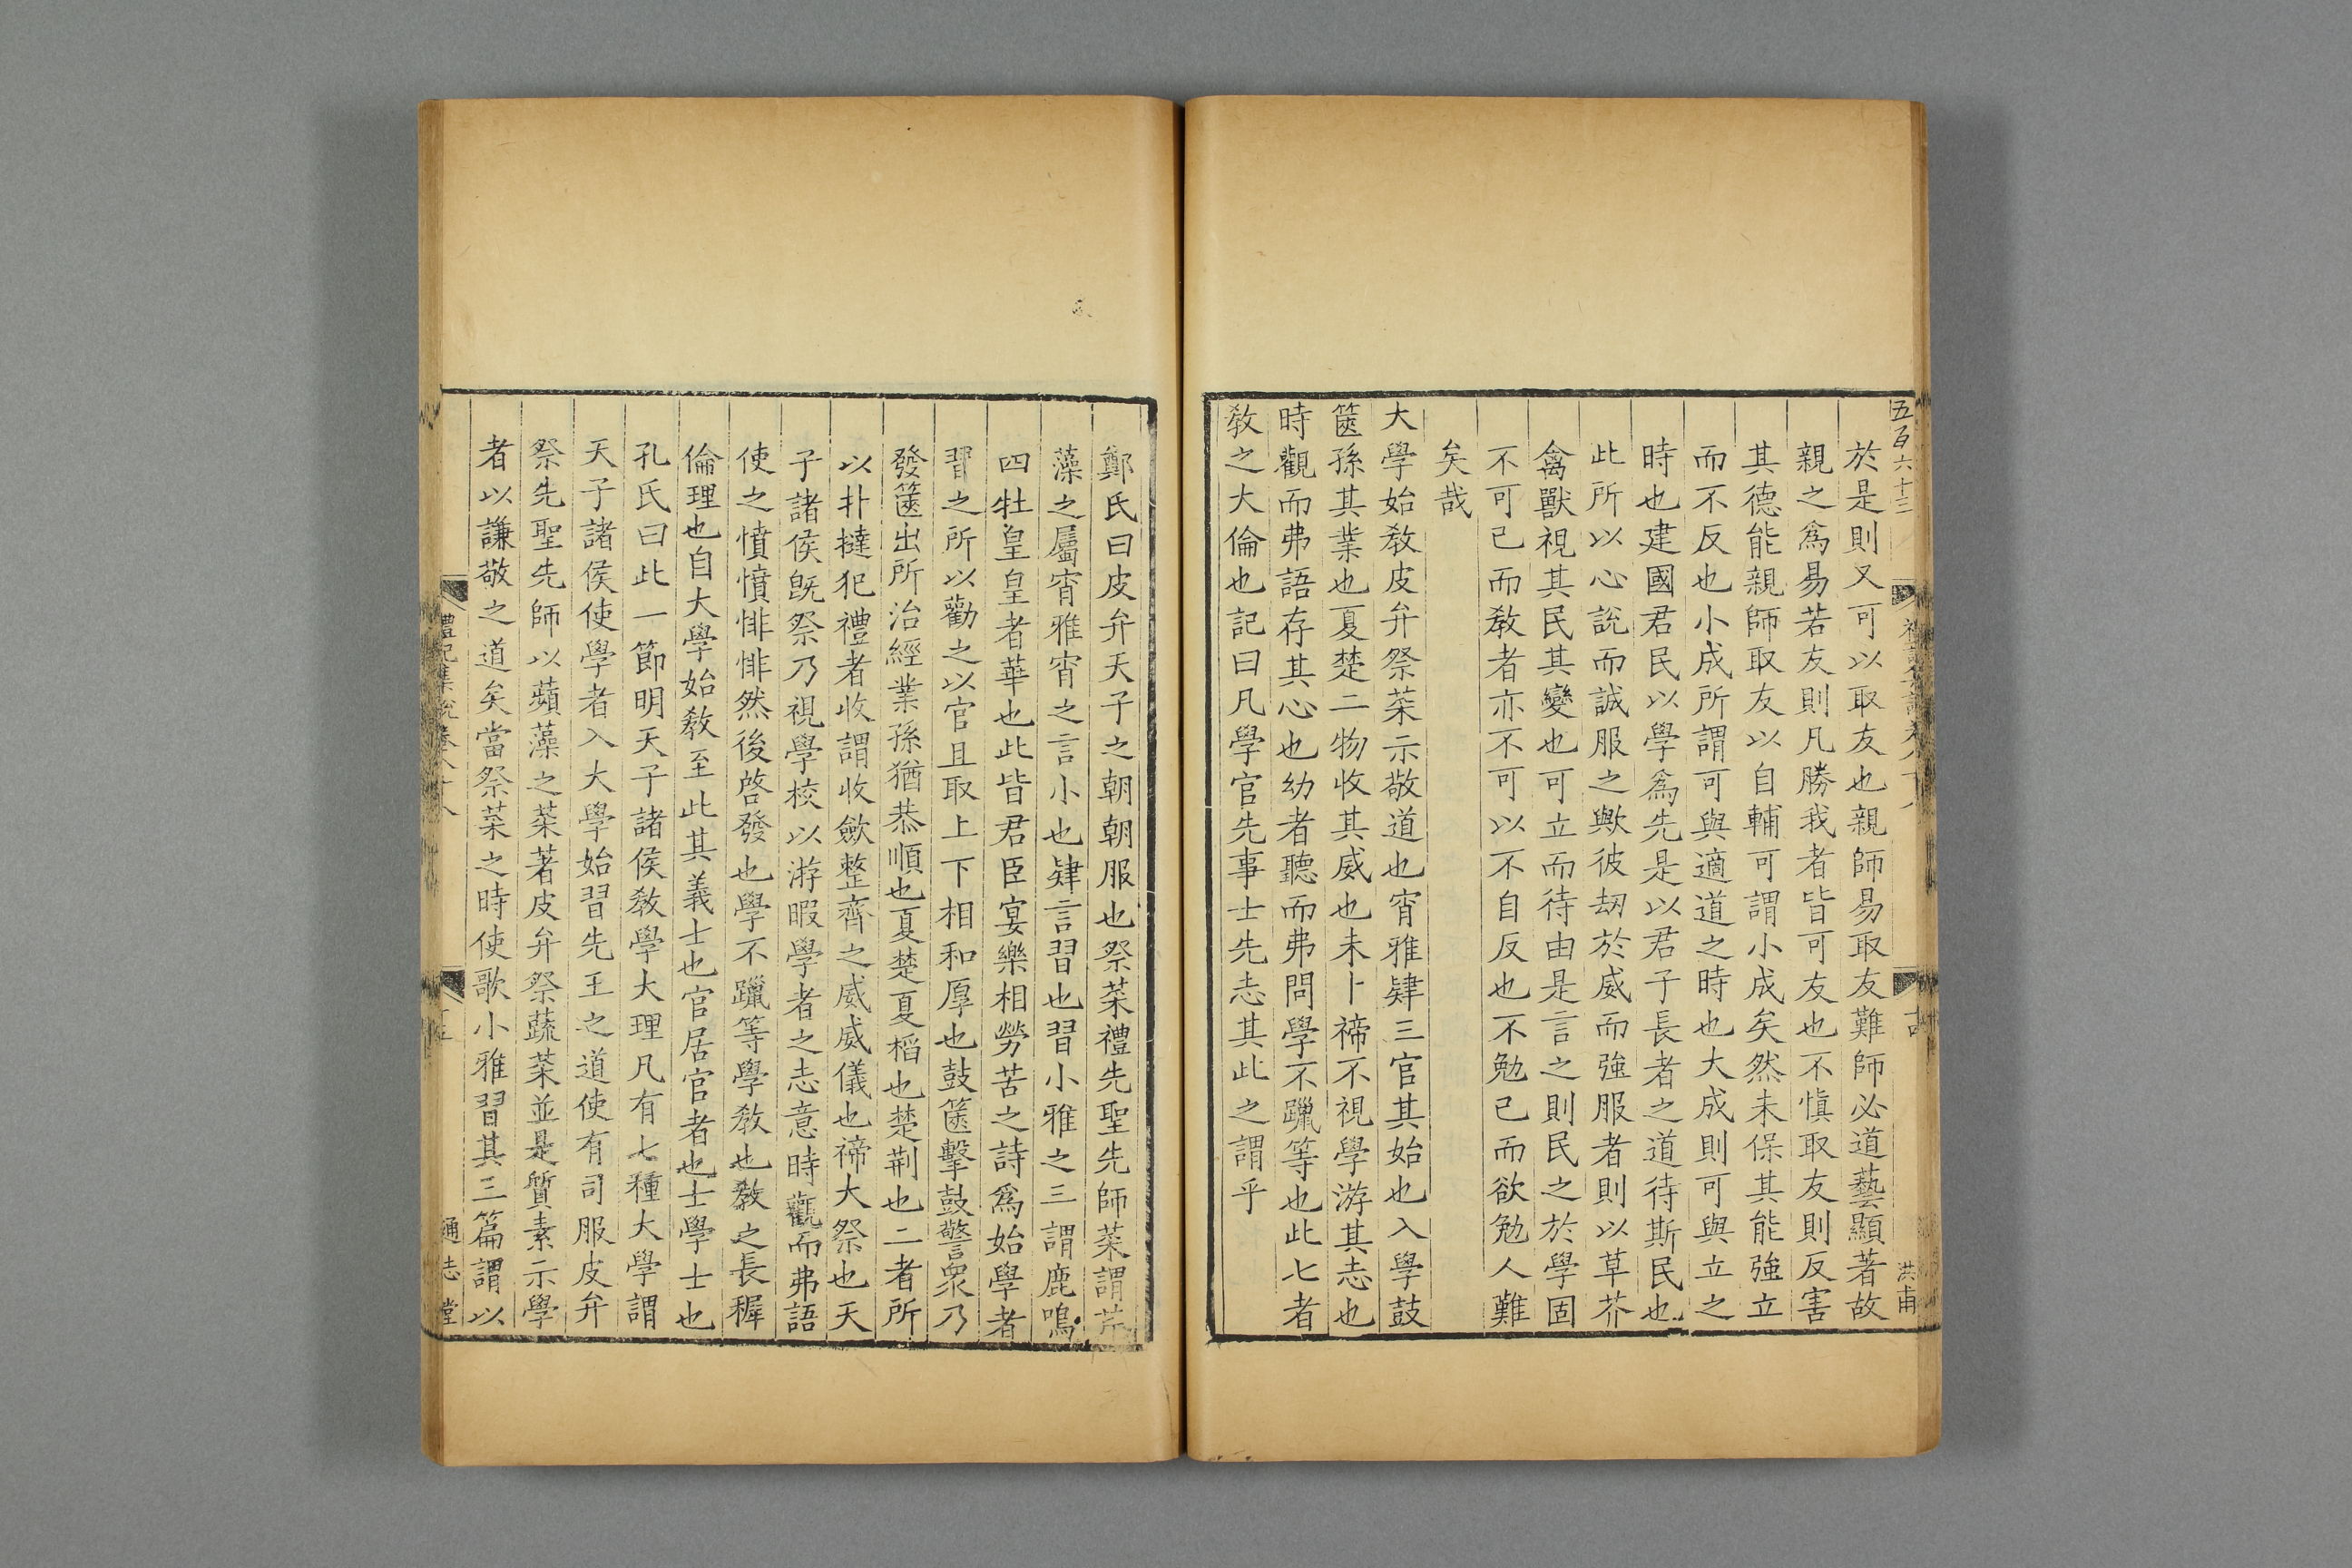 五百六十三
於是則又可以取友也親師易取友難師必道藝顯著故
親之為易若友則凡勝我者皆可友也不慎取友則反害
其德能親師取友以自輔可謂小成矣然未保其能強立
而不反也小成所謂可與適道之時也大成則可與立之
時也建國君民以學為先是以君子長者之道待斯民也
此所以心說而誠服之歟彼刼於威而強服者則以草芥
禽獸視其民其變也可立而待由是言之則民之於學固
不可已而敎者亦不可以不自反也不勉己而欲勉人難
矣哉
大學始敎皮弁祭菜示敬道也宵雅肄三官其始也入學鼓
篋孫其業也夏楚二物收其威也未卜禘不視學游其志也
時觀而弗語存其心也幼者聽而弗問學不躐等也此七者
敎之大倫也記曰凡學官先事士先志其此之謂乎
洪甫
鄭氏曰皮弁天子之朝朝服也祭菜禮先聖先師菜謂芹
藻之屬宵雅宵之言小也肄言習也習小雅之三謂鹿鳴
四牡皇皇者華也此皆君臣宴樂相勞苦之詩為始學者
習之所以勸之以官且取上下相和厚也鼓篋擊鼓警衆乃
發篋出所治經業孫猶恭順也夏楚夏榎也楚荆也二者所
以扑撻犯禮者收謂收斂整齊之威威儀也禘大祭也天
子諸侯旣祭乃視學校以游暇學者之志意時觀而弗語
使之憤憤悱悱然後啓發也學不躐等學敎也敎之長穉
倫理也自大學始敎至此其義士也官居官者也士學士也
孔氏曰此一節明天子諸侯敎學大理凡有七種大學謂
天子諸侯使學者入大學始習先王之道使有司服皮弁
祭先聖先師以蘋藻之菜著皮弁祭蔬菜並是質素示學
者以謙敬之道矣當祭菜之時使歌小雅習其三篇謂以
禮記集說卷八十八
通志堂